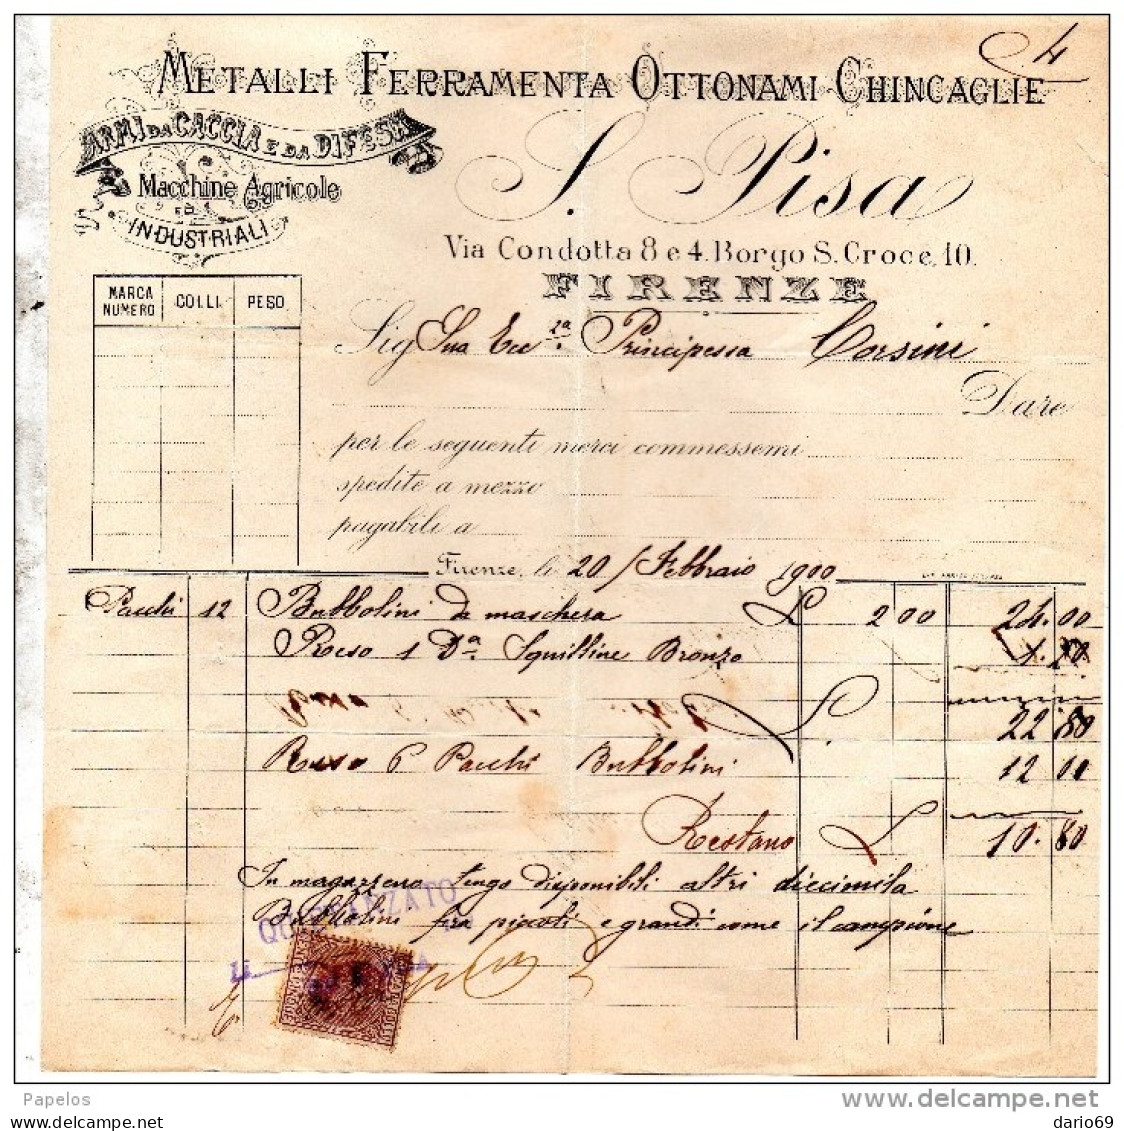 4
METALLI FERRAMENTA OTTONAMI CHINCAGLIE
ARMI DA CACCIA E DA DIFESA
Macchine Agricole
E
INDUSTRIALI
S. Pisa
Via Condotta 8 e 4. Borgo S. Croce, 10.
FIRENZE
MARCA NUMERO COLLI PESO
Sig Sua Ecc.za Principessa Corsini
Dare
per le seguenti merci commessemi
spedite a mezzo
pagabili a
Firenze, li 20 / Febbraio 1900
Pacchi 12 Bubbolini da maschera £ 2 00 24.00
Reso 1 D.a Squilline Bronzo 1.20
22 80
Reso 6 Pacchi Bubbolini 12 00
Restano £ 10.80
In magazzeno tengo disponibili altri diecimila
Bubbolini fra piccoli e grandi come il campione
QUIETANZATO
Papelos
delcampe.net
dario69